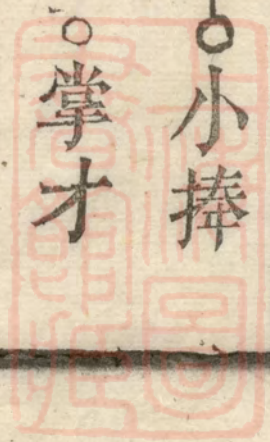 ○小捧
○掌才